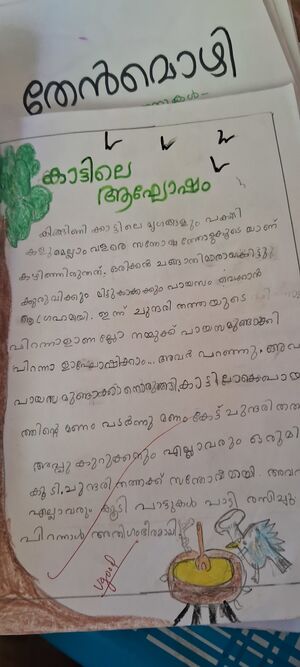 തേൻമൊഴി
കാട്ടിലെ
ആഘോഷം
കിങ്ങിണി ക്കാട്ടിലെ മൃഗങ്ങളും പക്ഷി
കളുമെല്ലാം വളരെ സന്തോഷത്തോടുകൂടെ യാണ്
കഴിഞ്ഞിരുന്നത്. ഒരിക്കൽ
കുരുവിക്കും മിട്ടു കാക്കക്കും പായസം വെക്കാൻ
ആഗ്രഹമായി. ഇന്ന് ചുന്ദരി തത്തയുടെ
പിറന്നാളാണ് ല്ലോ നമുക്ക് പായസമുണ്ടാക്കി
പിറന്നാ ളാഘോഷിക്കാം... അവർ പറഞ്ഞു.
പായസ മുണ്ടാക്കാനൊരുങ്ങി കാട്ടിലാകെ പായ
ത്തിന്റെ മണം പടർന്നു മണം കേട്ട് ചുന്ദരി തത്ത
അപ്പു കുറുക്കനും എല്ലാവരും ഒരുമി
കൂടി. ചുന്ദരി തത്തക്ക് സന്തോഷമായി. അവ
എല്ലാവരും കൂടി പാട്ടുകൾ പാടി രസിച്ചു
പിറന്നാൾ അതിഗംഭീരമാക്കി
vgood